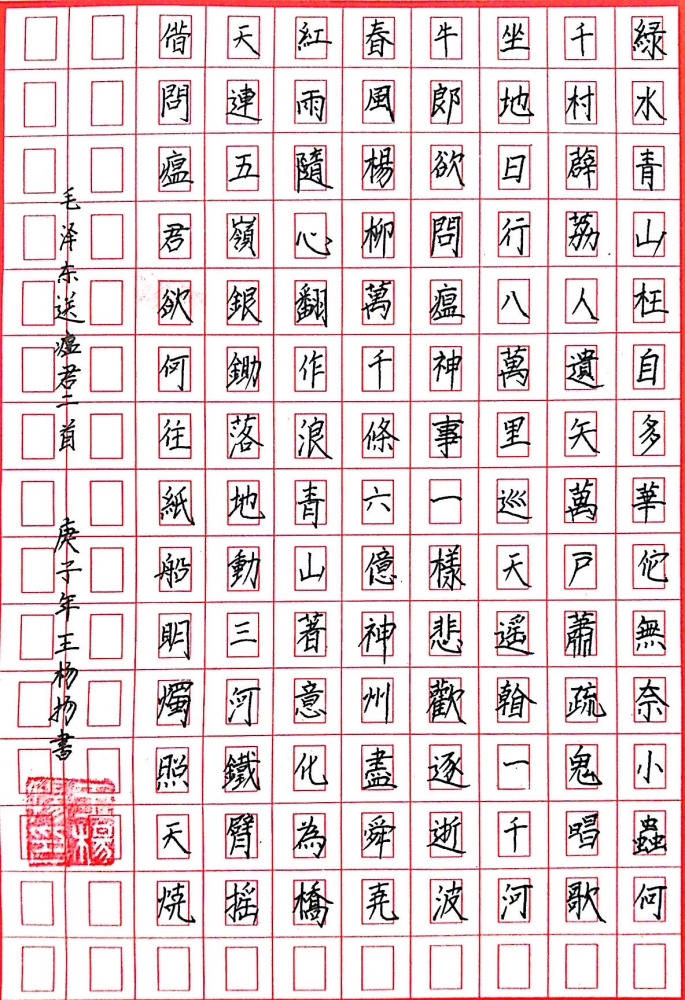 綠水青山枉自多華佗無奈小蟲何
千村薜荔人遺矢萬戶蕭疏鬼唱歌
坐地日行八萬里巡天遙看一千河
牛郎欲問瘟神事一樣悲歡逐逝波
春風楊柳萬千條六億神州盡舜堯
紅雨隨心翻作浪青山著意化為橋
天連五嶺銀鋤落地動三河鐵臂摇
借問瘟君欲何往紙船明燭照天燒
毛泽东送瘟君二首 庚子年王杨扬書